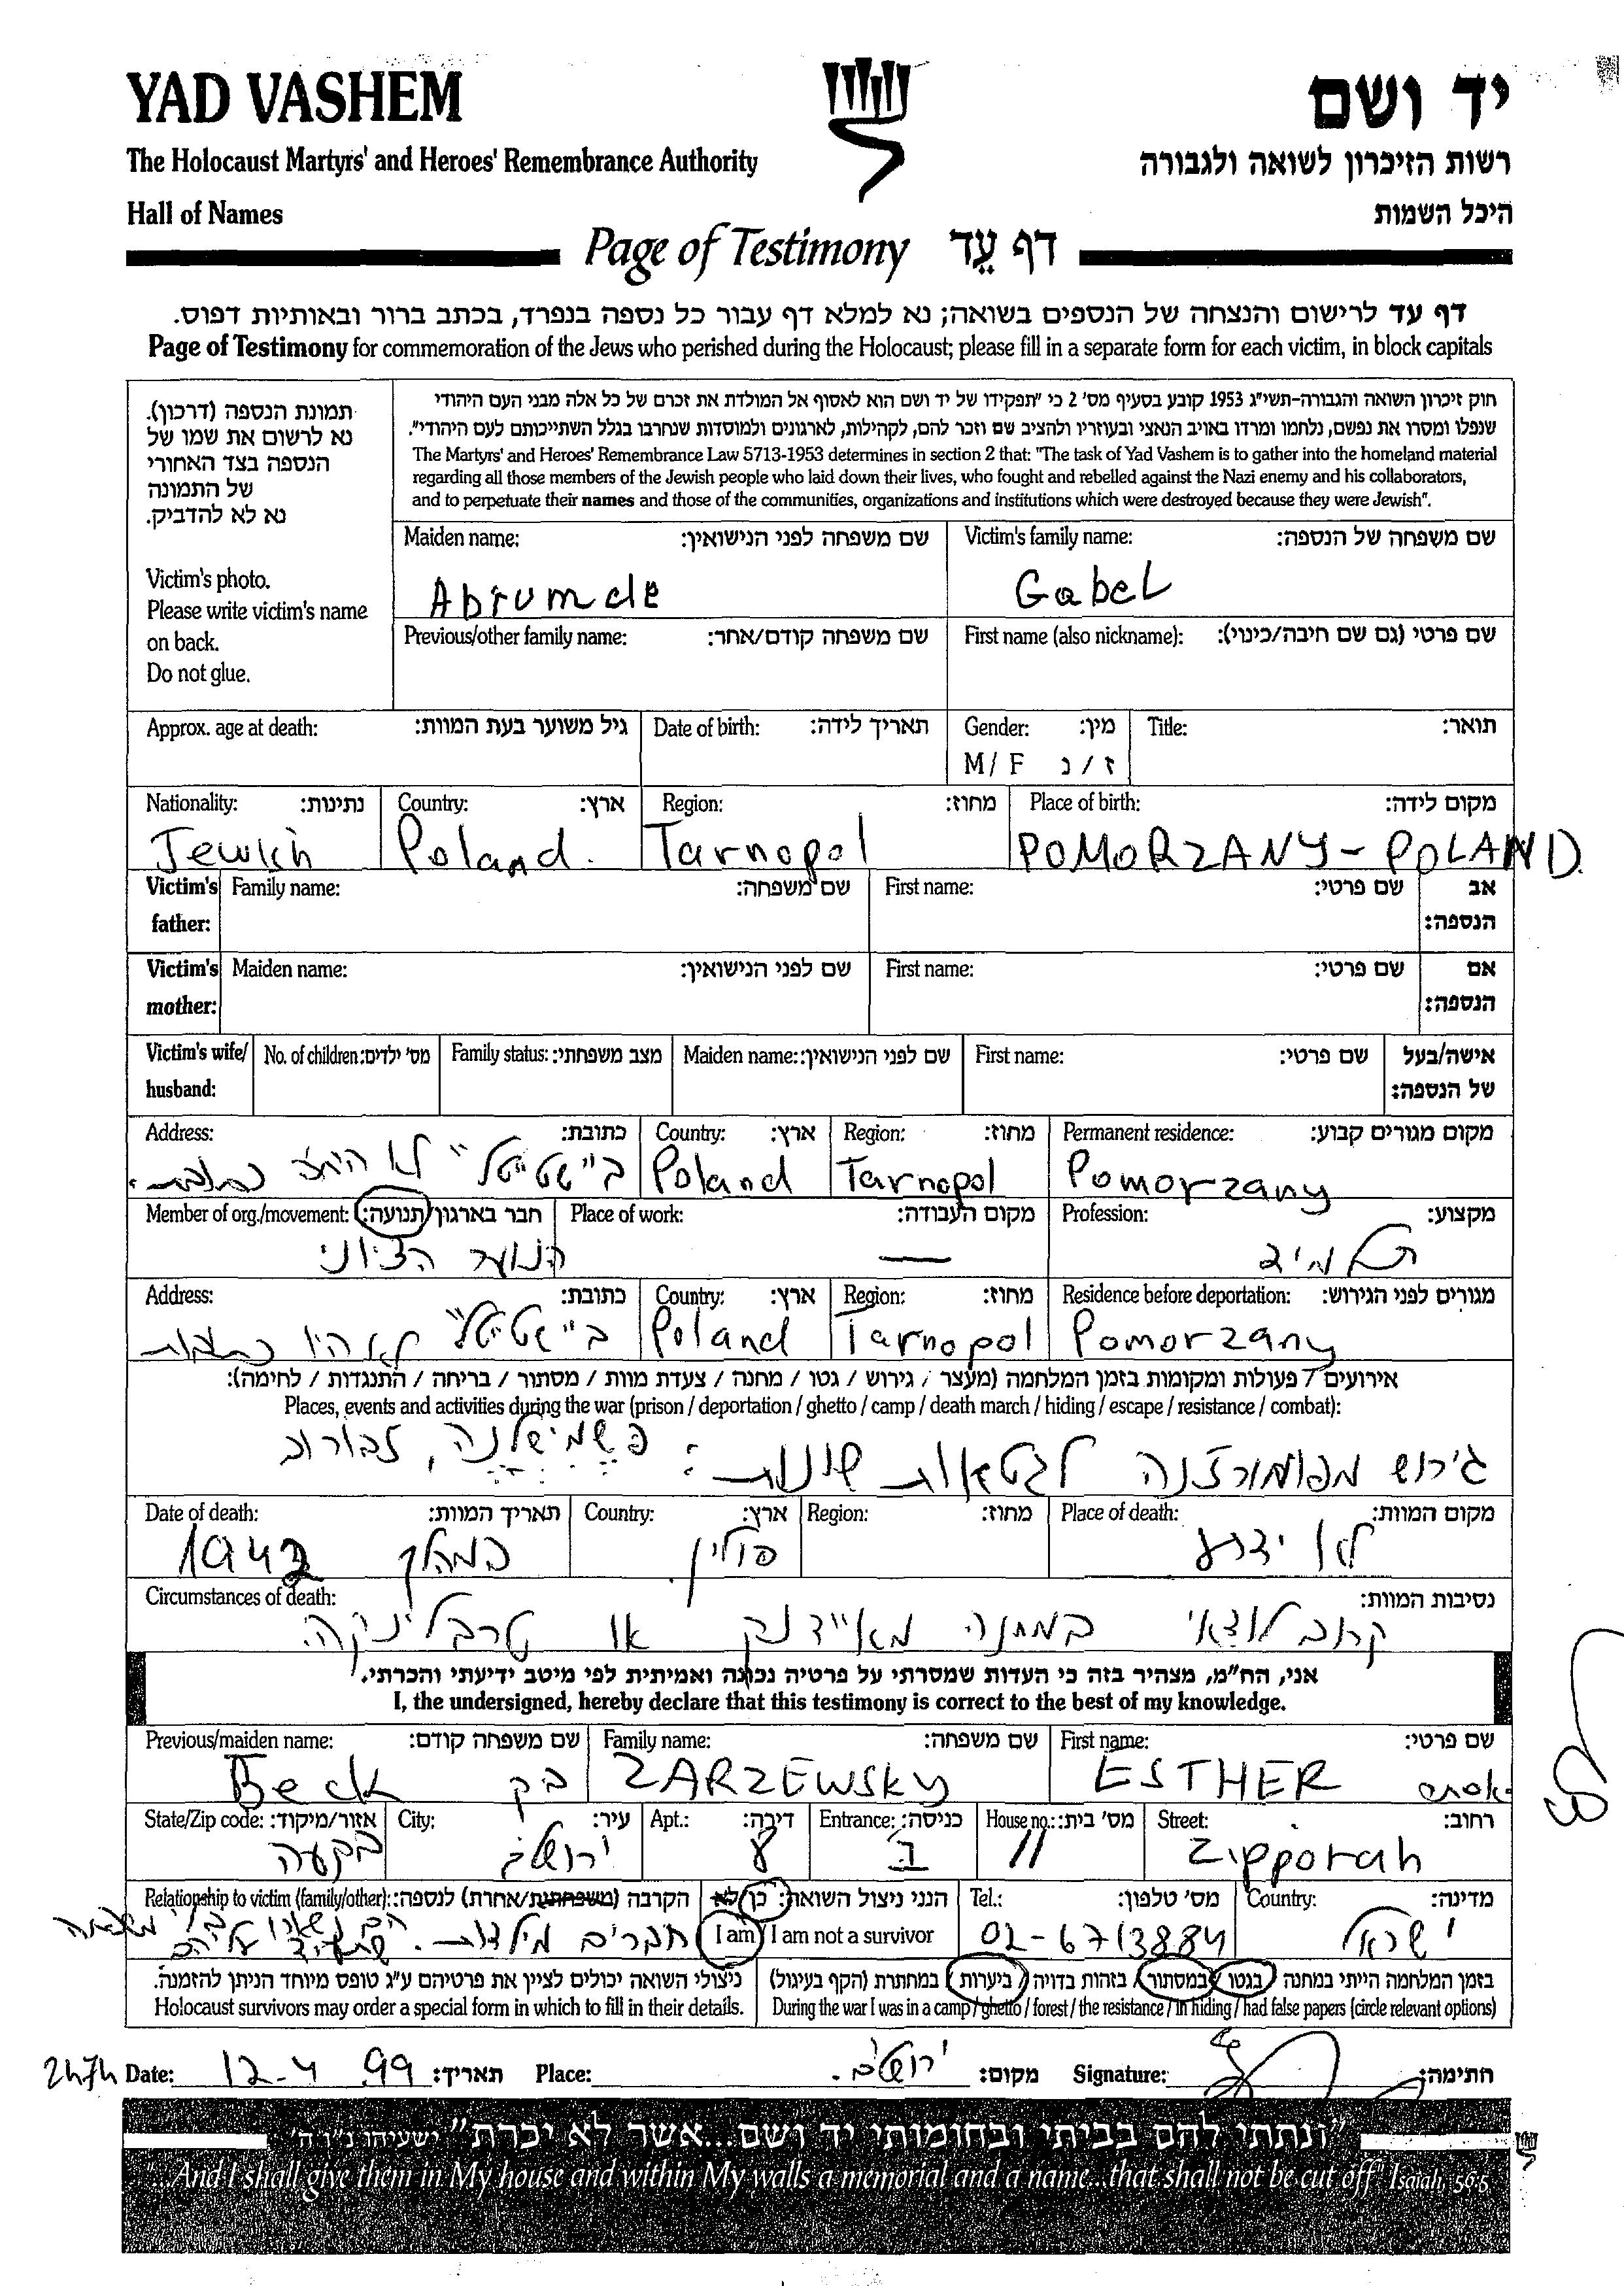 YAD VASHEM
יד ושם
The Holocaust Martyrs' and Heroes' Remembrance Authority
רשות הזיכרון לשואה ולגבורה
Hall of Names
היכל השמות
Page of Testimony דף עֵד
דף עד לרישום והנצחה של הנספים בשואה; נא למלא דף עבור כל נספה בנפרד, בכתב ברור ובאותיות דפוס.
Page of Testimony for commemoration of the Jews who perished during the Holocaust; please fill in a separate form for each victim, in block capitals
תמונת הנספה (דרכון).
נא לרשום את שמו של
הנספה בצד האחורי
של התמונה
נא לא להדביק.
Victim's photo.
Please write victim's name
on back.
Do not glue.
חוק זיכרון השואה והגבורה-תשי"ג 1953 קובע בסעיף מס' 2 כי "תפקידו של יד ושם הוא לאסוף אל המולדת את זכרם של כל אלה מבני העם היהודי
שנפלו ומסרו את נפשם, נלחמו ומרדו באויב הנאצי ובעוזריו ולהציב שם וזכר להם, לקהילות, לארגונים ולמוסדות שנחרבו בגלל השתייכותם לעם היהודי".
The Martyrs' and Heroes' Remembrance Law 5713-1953 determines in section 2 that: "The task of Yad Vashem is to gather into the homeland material
regarding all those members of the Jewish people who laid down their lives, who fought and rebelled against the Nazi enemy and his collaborators,
and to perpetuate their names and those of the communities, organizations and institutions which were destroyed because they were Jewish".
Maiden name: שם משפחה לפני הנישואין: Victim's family name: שם משפחה של הנספה:
Abrumcle Gabel
Previous/other family name: שם משפחה קודם/אחר: First name (also nickname): שם פרטי (גם שם חיבה/כינוי):
Approx. age at death: גיל משוער בעת המוות: Date of birth: תאריך לידה: Gender: מין: Title: תואר:
M/ F ז / נ
Nationality: נתינות: Country: ארץ: Region: מחוז: Place of birth: מקום לידה:
Jewish Poland. Tarnopol POMORZANY - POLAND
Victim's father: Family name: שם משפחה: First name: שם פרטי: אב הנספה:
Victim's mother: Maiden name: שם לפני הנישואין: First name: שם פרטי: אם הנספה:
Victim's wife/ husband: No. of children: מס' ילדים: Family status: מצב משפחתי: Maiden name: שם לפני הנישואין: First name: שם פרטי: אישה/בעל של הנספה:
Address: כתובת: Country: ארץ: Region: מחוז: Permanent residence: מקום מגורים קבוע:
ב"שטיטל" לא היו כתובות. Poland Tarnopol Pomorzany
Member of org./movement: חבר בארגון/תנועה: Place of work: מקום העבודה: Profession: מקצוע:
הנוער הציוני — תלמיד
Address: כתובת: Country: ארץ: Region: מחוז: Residence before deportation: מגורים לפני הגירוש:
ב"שטיטל" לא היו כתובות Poland Tarnopol Pomorzany
אירועים / פעולות ומקומות בזמן המלחמה (מעצר / גירוש / גטו / מחנה / צעדת מוות / מסתור / בריחה / התנגדות / לחימה):
Places, events and activities during the war (prison / deportation / ghetto / camp / death march / hiding / escape / resistance / combat):
גירוש מפומורזנה לגטאות שונות: פשמישלנה, זבורוב
Date of death: תאריך המוות: Country: ארץ: Region: מחוז: Place of death: מקום המוות:
במהלך 1942 פולין לא ידוע
Circumstances of death: נסיבות המוות:
קרוב לודאי במחנה מאיידנק או טרבלינקה
אני, הח"מ, מצהיר בזה כי העדות שמסרתי על פרטיה נכונה ואמיתית לפי מיטב ידיעתי והכרתי.
I, the undersigned, hereby declare that this testimony is correct to the best of my knowledge.
Previous/maiden name: שם משפחה קודם: Family name: שם משפחה: First name: שם פרטי:
Beck בק ZARZEWSKY ESTHER אסתר
State/Zip code: אזור/מיקוד: City: עיר: Apt.: דירה: Entrance: כניסה: House no.: מס' בית: Street: רחוב:
בקעה ירושלים 8 ב 11 Zipporah
Relationship to victim (family/other): הקרבה (משפחתית/אחרת) לנספה: הנני ניצול השואה: כן/לא Tel.: מס' טלפון: Country: מדינה:
חברים מילדות. הם נשארו בלי משפחה שתעיד עליהם I am / I am not a survivor 02-6713884 ישראל
ניצולי השואה יכולים לציין את פרטיהם ע"ג טופס מיוחד הניתן להזמנה.
Holocaust survivors may order a special form in which to fill in their details.
בזמן המלחמה הייתי במחנה / בגטו / במסתור / בזהות בדויה / ביערות / במחתרת (הקף בעיגול)
During the war I was in a camp / ghetto / forest / the resistance / in hiding / had false papers (circle relevant options)
Date: 12-4 99 תאריך: Place: ירושלים. מקום: Signature: חתימה:
"ונתתי להם בביתי ובחומותי יד ושם...אשר לא יכרת" ישעיהו נ"ו ה'
"And I shall give them in My house and within My walls a memorial and a name...that shall not be cut off" Isaiah, 56:5